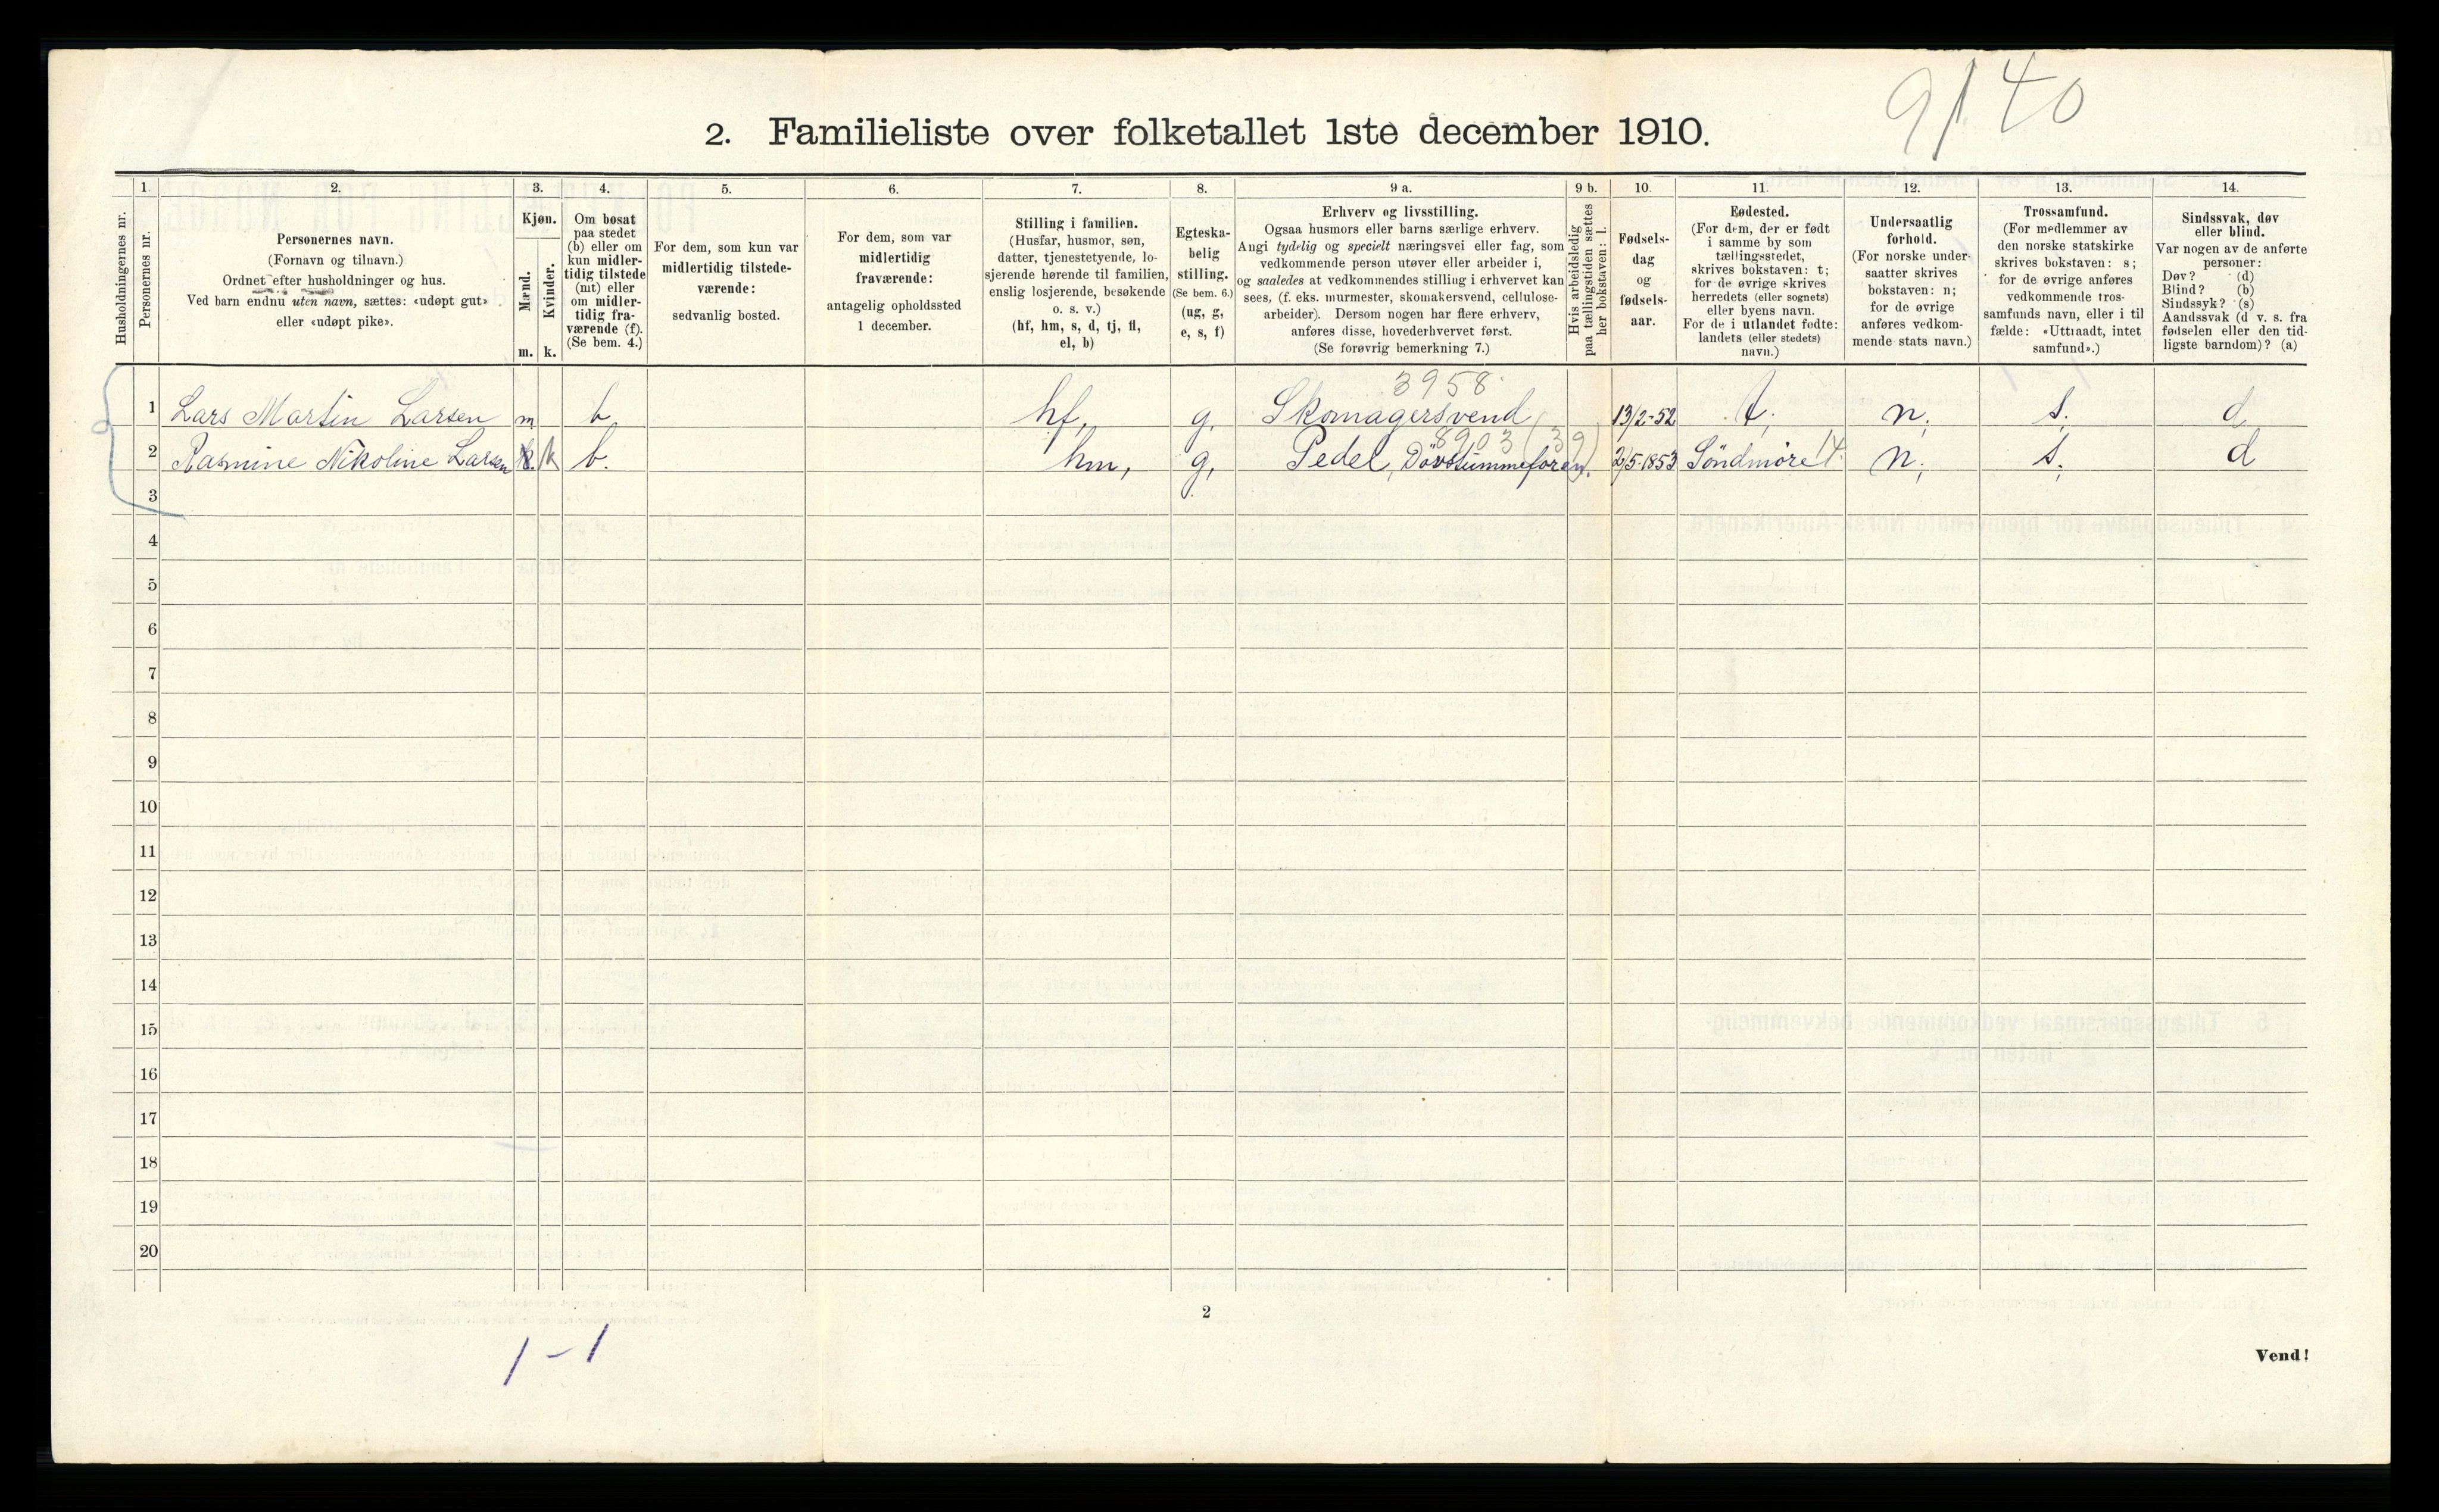 9/40
2. Familieliste over folketallet 1ste december 1910.
Husholdningernes nr.
1.
Personernes nr.
2.
Personernes navn.
(Fornavn og tilnavn.)
Ordnet efter husholdninger og hus.
Ved barn endnu uten navn, sættes: «udøpt gut»
eller «udøpt pike».
3.
Kjøn.
Mænd.
m.
Kvinder.
k.
4.
Om bosat
paa stedet
(b) eller om
kun midler-
tidig tilstede
(mt) eller
om midler-
tidig fra-
værende (f).
(Se bem. 4.)
5.
For dem, som kun var
midlertidig tilstede-
værende:
sedvanlig bosted.
6.
For dem, som var
midlertidig
fraværende:
antagelig opholdssted
1 december.
7.
Stilling i familien.
(Husfar, husmor, søn,
datter, tjenestetyende, lo-
sjerende hørende til familien,
enslig losjerende, besøkende
o. s. v.)
(hf, hm, s, d, tj, fl,
el, b)
8.
Egteska-
belig
stilling.
(Se bem. 6.)
(ug, g,
e, s, f)
9 a.
Erhverv og livsstilling.
Ogsaa husmors eller barns særlige erhverv.
Angi tydelig og specielt næringsvei eller fag, som
vedkommende person utøver eller arbeider i,
og saaledes at vedkommendes stilling i erhvervet kan
sees, (f. eks. murmester, skomakersvend, cellulose-
arbeider). Dersom nogen har flere erhverv,
anføres disse, hovederhvervet først.
(Se forøvrig bemerkning 7.)
9 b.
Hvis arbeidsledig
paa tællingstiden sættes
her bokstaven: l.
10.
Fødsels-
dag
og
fødsels-
aar.
11.
Fødested.
(For dem, der er født
i samme by som
tællingsstedet,
skrives bokstaven: t;
for de øvrige skrives
herredets (eller sognets)
eller byens navn.
For de i utlandet fødte:
landets (eller stedets)
navn.)
12.
Undersaatlig
forhold.
(For norske under-
saatter skrives
bokstaven: n;
for de øvrige
anføres vedkom-
mende stats navn.)
13.
Trossamfund.
(For medlemmer av
den norske statskirke
skrives bokstaven: s;
for de øvrige anføres
vedkommende tros-
samfunds navn, eller i til
fælde: «Uttraadt, intet
samfund».)
14.
Sindssvak, døv
eller blind.
Var nogen av de anførte
personer:
Døv? (d)
Blind? (b)
Sindssyk? (s)
Aandssvak (d v. s. fra
fødselen eller den tid-
ligste barndom)? (a)
3958
1 Lars Martin Larsen m b hf, g, Skomagersvend 13/2-52 t; n; s; d
8903 (39)
2 Rasmine Nikoline Larsen k b. hm, g, Pedel, Dövstummeforen. 2/5-1853 Söndmöre n; s; d
3
4
5
6
7
8
9
10
11
12
13
14
15
16
17
18
19
20
2
1-1
Vend!